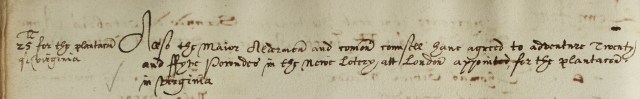 25 for the plantacon
of virginia
Also the Maior Aldermen and comon counsell have agreed to adventure Twenty
and ffyve Poundes in the Newe Lotery att London appointed for the plantacon
in virginia